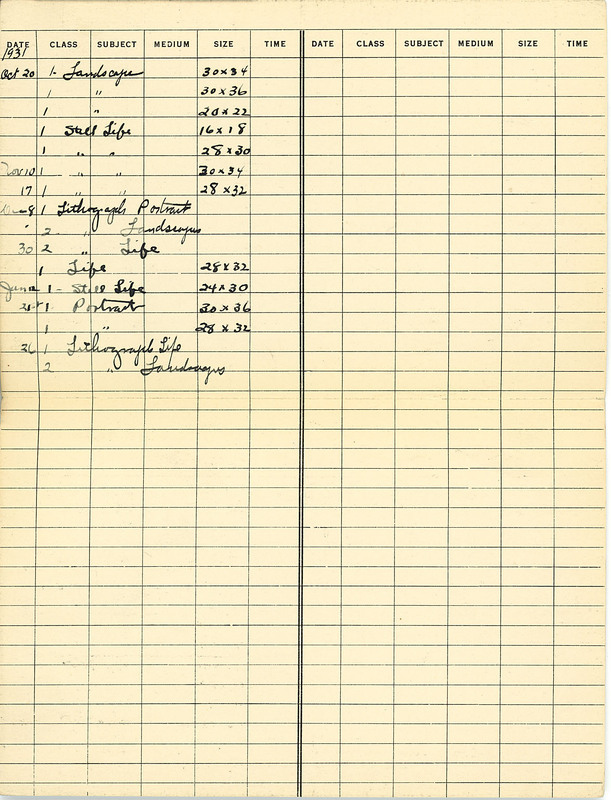 DATE CLASS SUBJECT MEDIUM SIZE TIME DATE CLASS SUBJECT MEDIUM SIZE TIME
1931
Oct 20 1- Landscape 30x34
1 " 30x36
1 " 20x22
1 Still Life 16x18
1 " " 28x30
Nov 10 1 " " 30x34
17 1 " " 28x32
8 1 Lithograph Portrait
" 2 " Landscapes
30 2 " Life
1 Life 28x32
Jan 12 1- Still Life 24x30
21 1 Portrait 30x36
1 " 28x32
26 1 Lithograph Life
2 " Landscapes